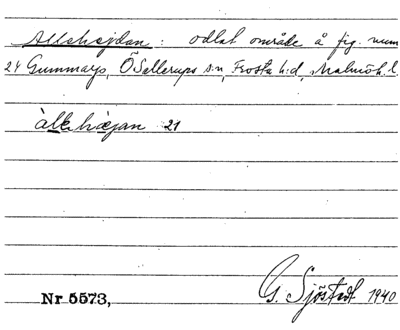 Allehejdan : odlat område å fig. num
24 Gummarp, ÖSallerups s:n, Frosta h:d, Malmöh. l.
àllehæjan 21
Nr 5573, G. Sjöstedt 1940